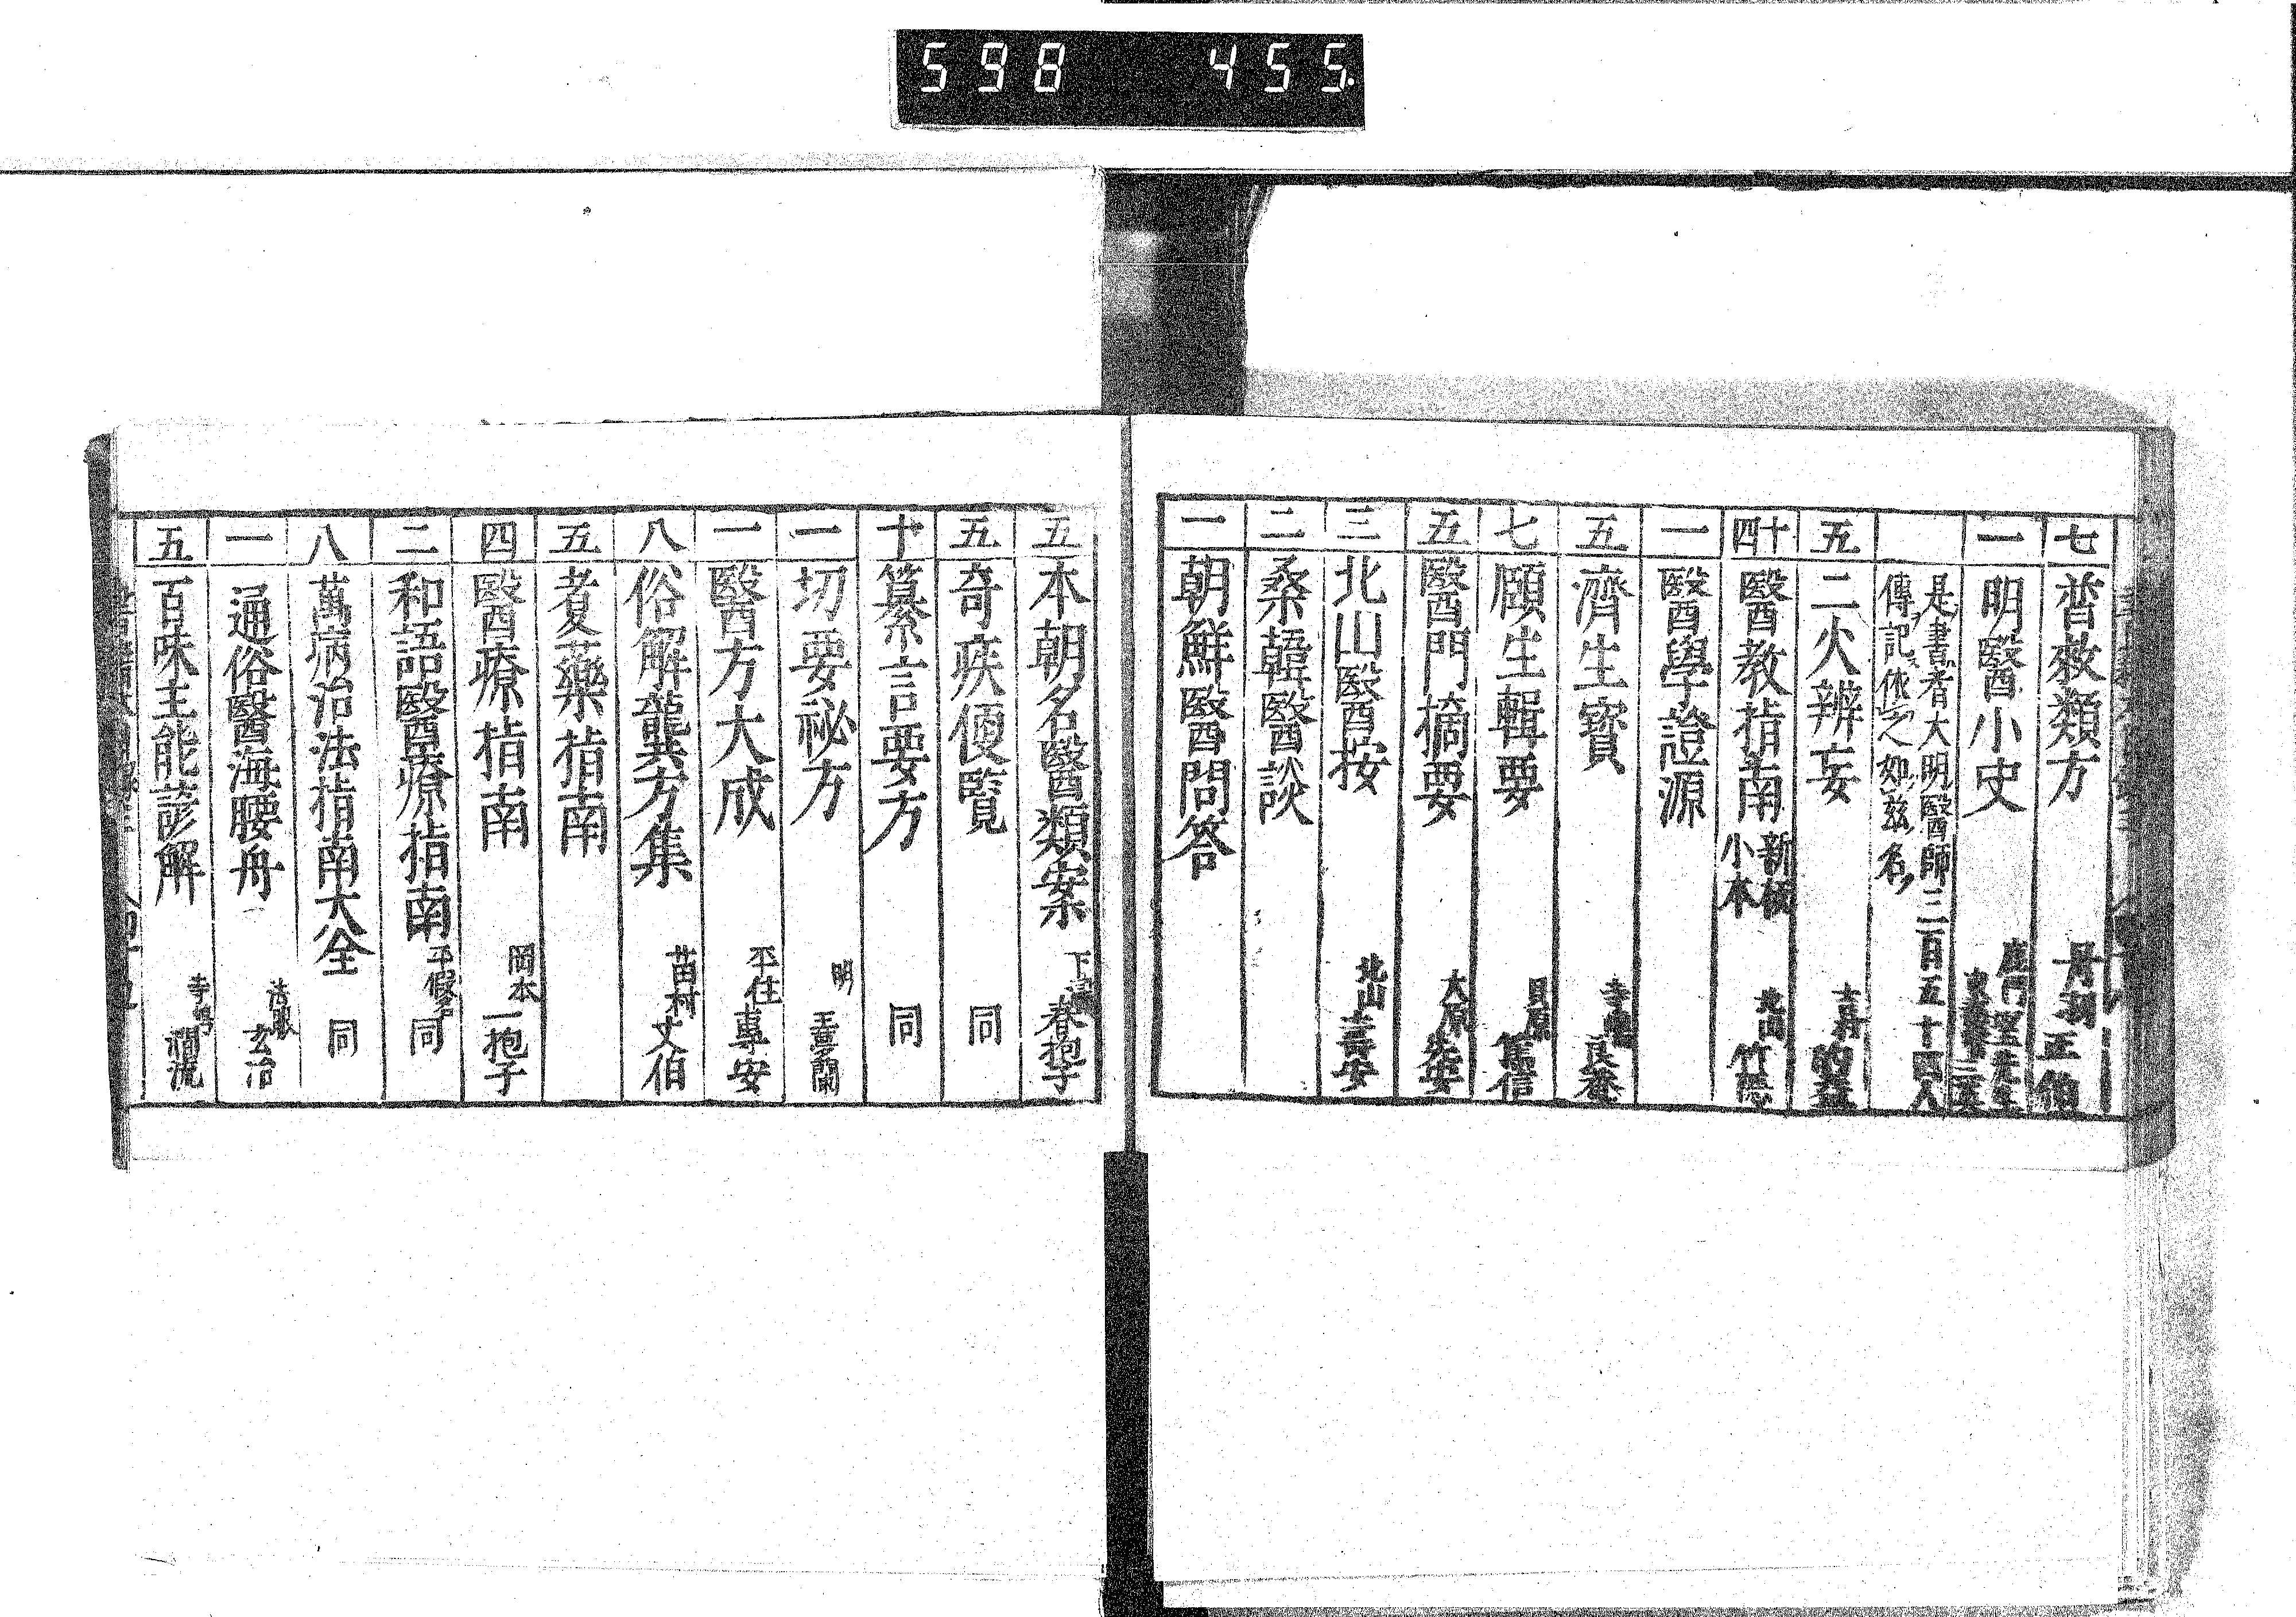 598 455.
七 普救類方 丹羽 正伯
一 明醫小史
是書者大明醫師三百五十四人
傳ヲ記ス依之如茲名ク
五 二火辨妄
十四 醫教指南 新板 小本 北山 竹隱
一 醫學證源
五 濟生寶 寺嶋 良菴
七 頤生輯要 貝原 篤信
五 醫門摘要 大原
三 北山醫按 北山 壽安
二 桑韓醫談
一 朝鮮醫問答
五 本朝名醫類案 下津 春抱子
五 奇疾便覧 同
十 纂言要方 同
一 切要祕方 明
一 醫方大成 平住 專安
八 俗解龔方集 苗村 丈伯
五 耆藥指南
四 醫療指南 岡本 一抱子
二 和語醫療指南 平假名 同
八 萬病治法指南大全 同
一 通俗醫海腰舟 法眼 玄冶
五 百味主能諺解 寺嶋